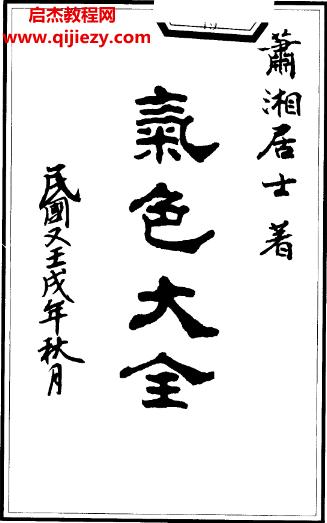 启杰教程网
www.qijiezy.com
蕭湘居士 著
氣色大全
民國又壬戌年秋月